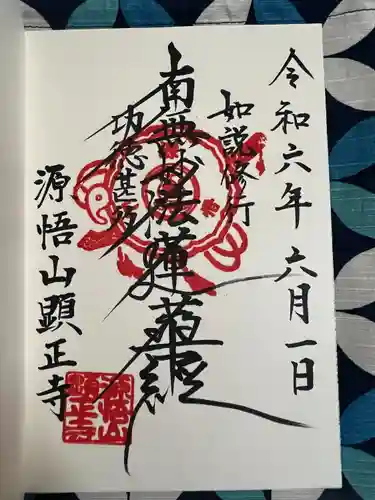 令和六年六月一日
如説修行
南無妙法蓮華経
功徳甚多
源悟山顕正寺
源悟山
顕正寺